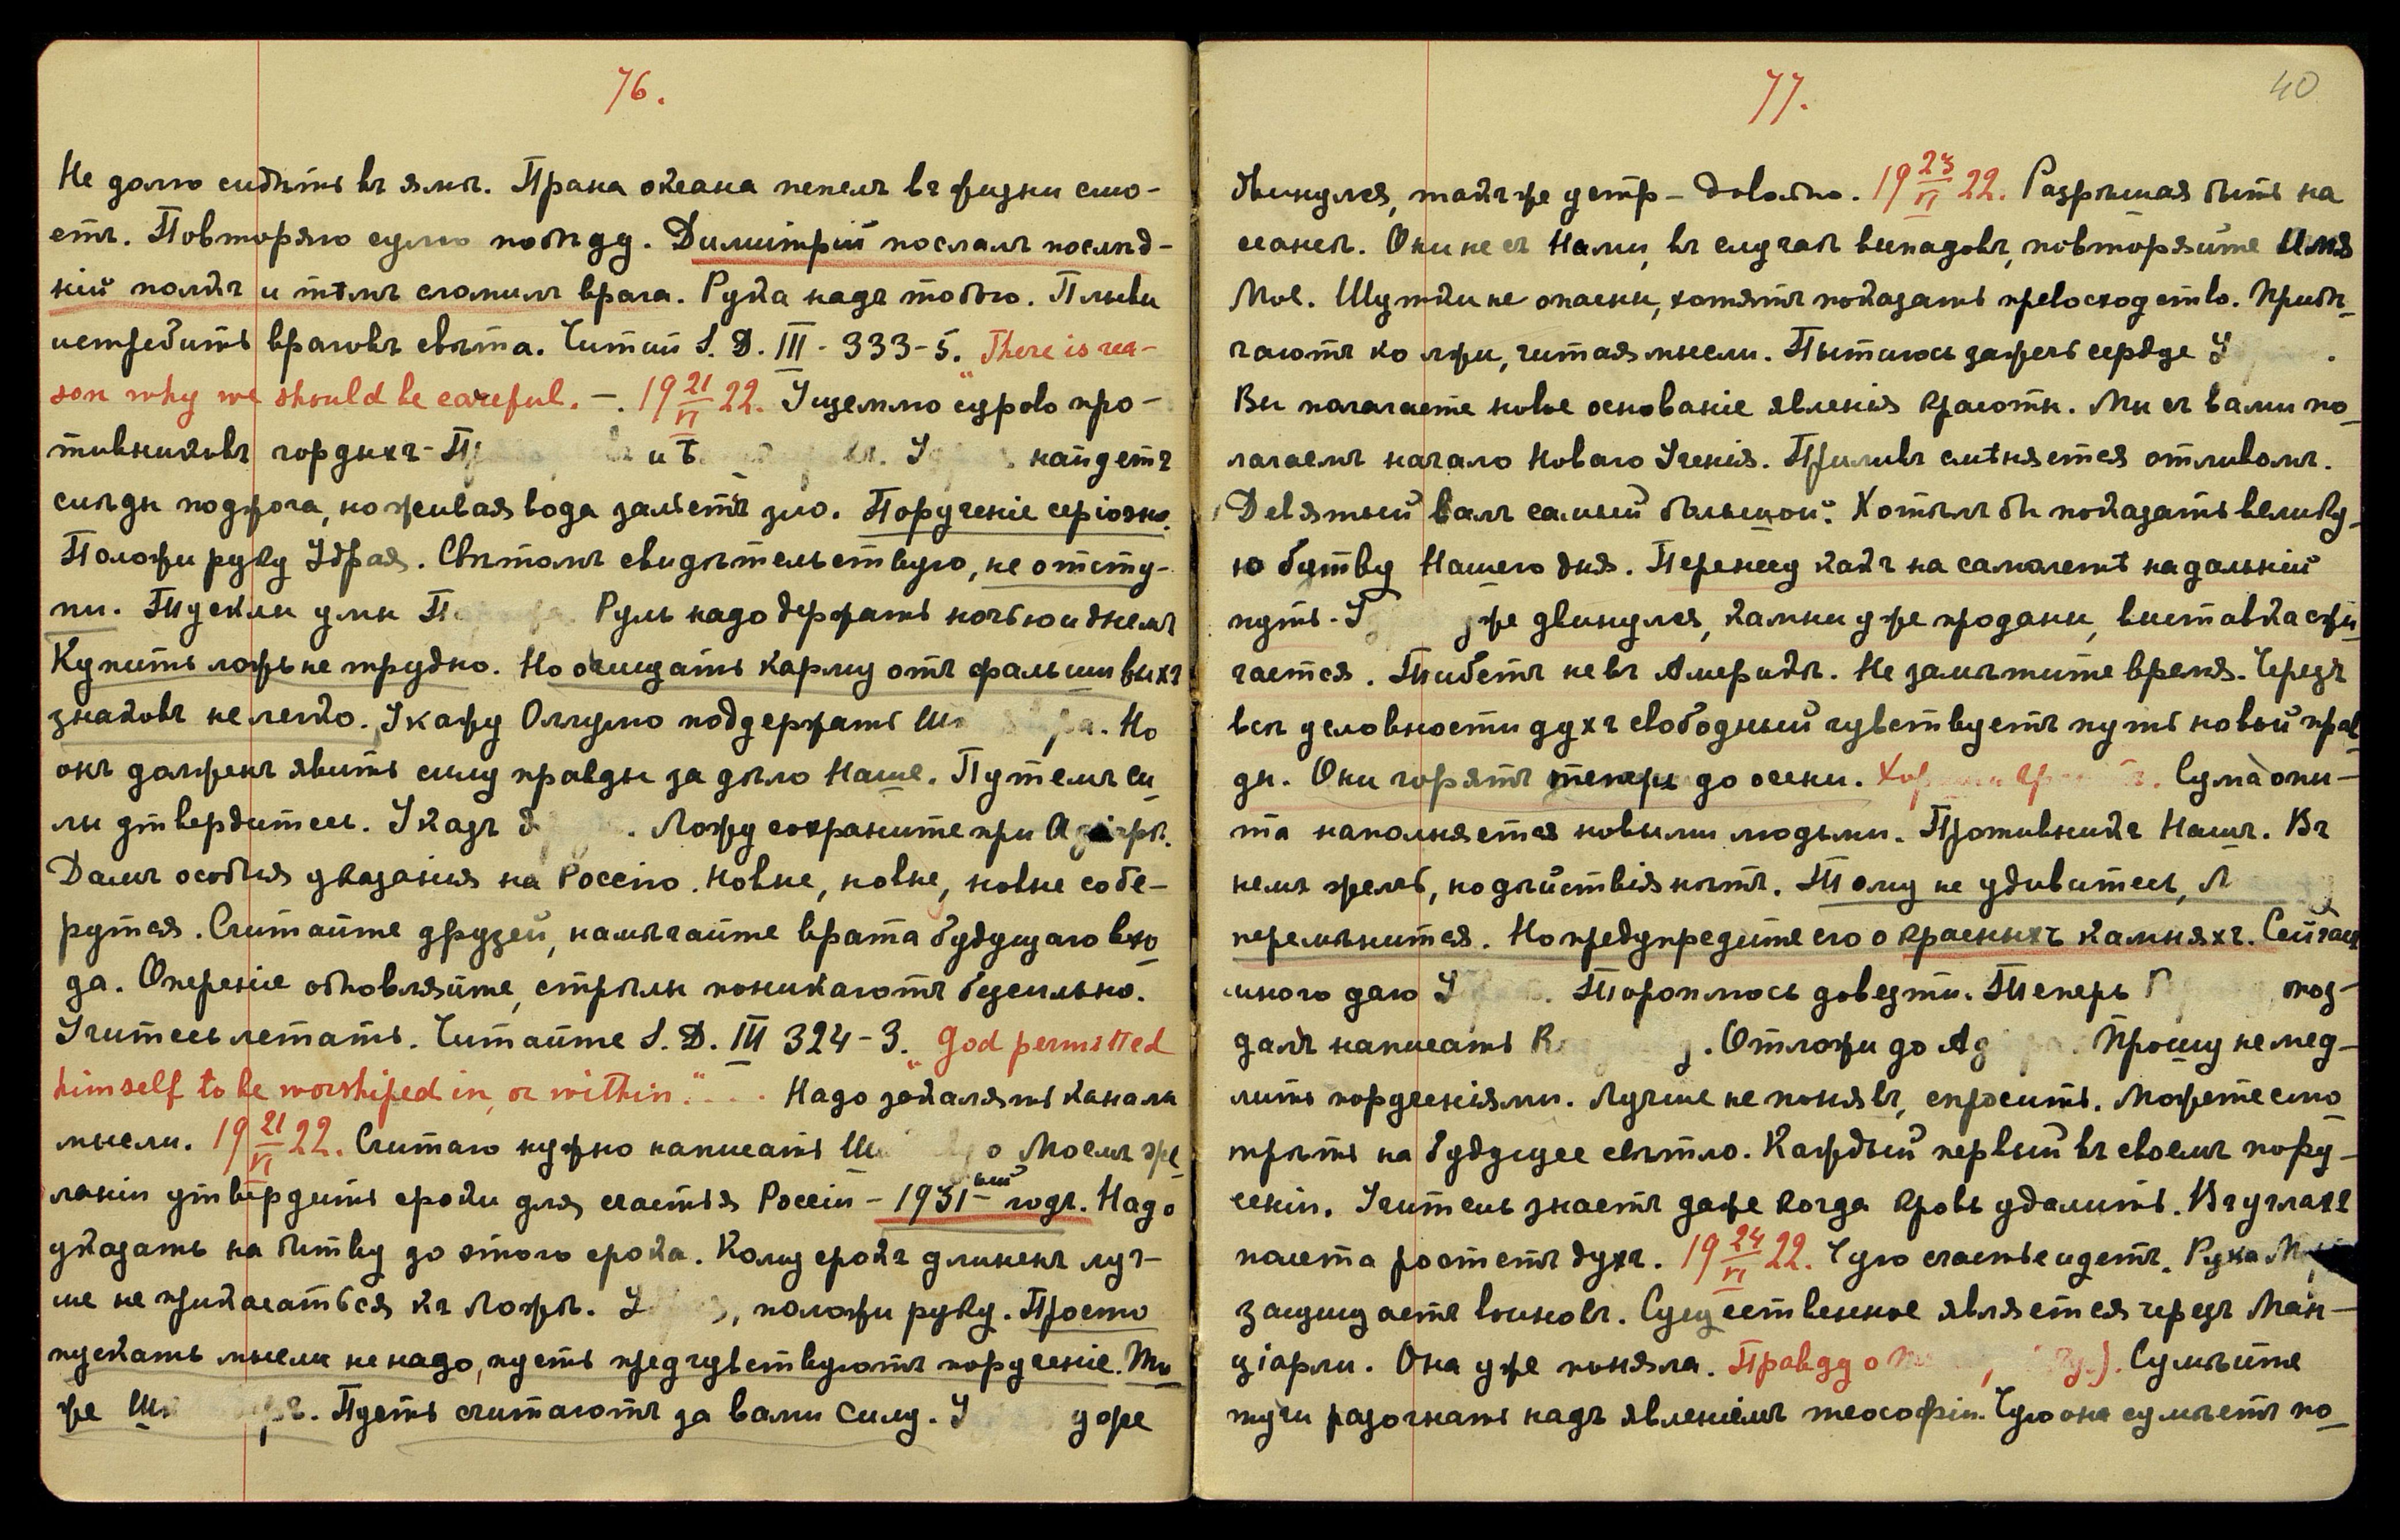 76.
Не долго сидѣть въ ямѣ. Прана океана пепелъ въ жизни смо-
етъ. Повторяю сулю побѣду. Димитрій послалъ послѣд-
ній полкъ и тѣмъ сломилъ врага. Рука надъ тобою. Плыви
истребить враговъ свѣта. Читай S. D. III - 333-5. "There is rea-
son why we should be careful. —. 19 21/VI 22. Ущемлю сурово про-
тивниковъ гордыхъ - и найдетъ
слѣды поджога, но живая вода зальетъ зло. Порученіе серіозно.
Положи руку Удрая. Свѣтомъ свидѣтельствую, не отсту-
пи. Тусклы умы Руль надо держать ночью и днемъ
Купить ложь не трудно. Но очищать карму отъ фальшивыхъ
знаковъ не легко. Укажу Оллумо поддержать Но
онъ долженъ явить силу правды за дѣло Наше. Путемъ си
лы утвердитесь. Указъ Ложу сохраните при
Дамъ особыя указанія на Россію. Новые, новые, новые собе-
рутся. Считайте друзей, намѣчайте врата будущаго вхо
да. Опереніе обновляйте, стрѣлы поникаютъ безсильно.
Учитесь летать. Читайте S. D. III 324-3. "God permitted
himself to be worshiped in, or within". . . . Надо закалять каналы
мысли. 19 21/VI 22. Считаю нужно написать о Моемъ же
ланіи утвердить сроки для счастья Россіи - 1931-ый годъ. Надо
указать на битву до этого срока. Кому срокъ длиненъ луч-
ше не прикасаться къ Ложѣ. положи руку. Просто
пускать мысли не надо, пусть предчувствуютъ порученіе. То
же Пусть считаютъ за вами силу. уже
77.
40
двинулся, также устр - довольно. 19 23/VI 22. Разрѣшая быть на
сеансѣ. Они не съ Нами, въ случаѣ выпадовъ, повторяйте Имя
Мое. Шутки не опасны, хотятъ показать превосходство. Прибѣ
гаютъ ко лжи, читая мысли. Пытаюсь зажечь сердце
Вы полагаете новое основаніе явленія красоты. Мы съ вами по
лагаемъ начало Новаго Ученія. Приливъ смѣняется отливомъ.
Девятый валъ самый большой. Хотѣлъ бы показать велику
ю битву Нашего дня. Перенесу какъ на самолетѣ на дальній
путь. уже двинулся, камни уже проданы, выставка сжи
гается. Тибетъ не въ Америкѣ. Не замѣтите время. Черезъ
всѣ условности духъ свободный чувствуетъ путь новый прав
ды. Они горятъ теперь до осени. Сума опы-
та наполняется новыми людьми. Противникъ Нашъ. Въ
немъ желчь, но дѣйствія нѣтъ. Тому не удивитесь,
перемѣнится. Но предупредите его о красныхъ камняхъ. Сейчасъ
много даю Тороплюсь довезти. Теперь
далъ написать Отложи до Прошу не мед-
лить порученіями. Лучше не понявъ, спросить. Можете смо
трѣть на будущее свѣтло. Каждый первый въ своемъ пору-
ченіи. Учитель знаетъ даже когда кровь удалить. Въ углахъ
полета ростетъ духъ. 19 24/VI 22. Чую счастье идетъ. Рука
защищаетъ воиновъ. Существенное является черезъ Ман-
ціарли. Она уже поняла. Правду о Сумѣйте
тучи разогнать надъ явленіемъ теософіи. Чую она сумѣетъ по